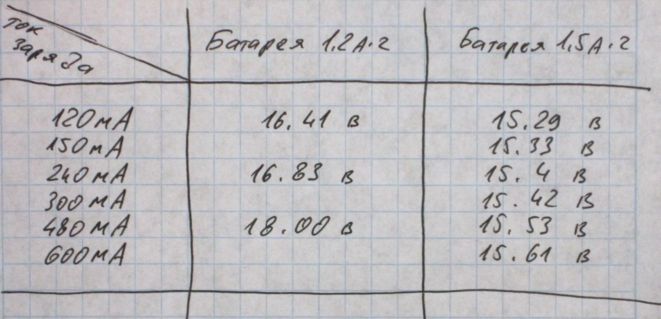 ток заряда Батарея 1,2 А·ч Батарея 1,5 А·ч
120 мА 16.41 в 15.29 в
150 мА 15.33 в
240 мА 16.83 в 15.4 в
300 мА 15.42 в
480 мА 18.00 в 15.53 в
600 мА 15.61 в